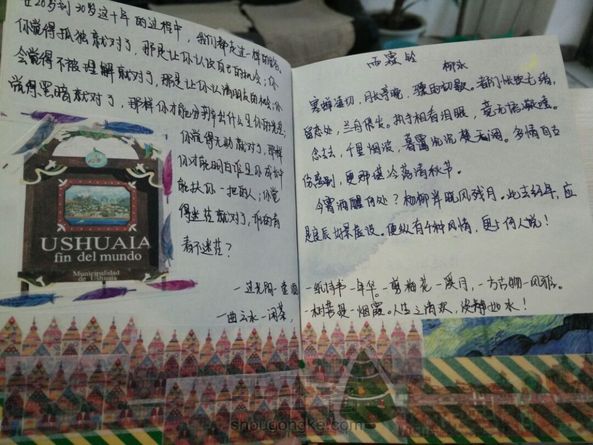 在20岁到30岁这十年的过程中，我们都走过一样的路。
你觉得孤独就对了，那是让你认识自己的机会；你
觉得不被理解就对了，那是让你认清朋友的机会；你
觉得黑暗就对了，那样你才能分辨出什么是你的光芒，
你觉得无助就对了，那样
你才能明白谁是你成长中
能扶你一把的人；你觉
得迷茫就对了，谁的青
春不迷茫？
一曲云水一闲茶
USHUAIA
fin del mundo
Municipalidad
de Ushuaia
雨霖铃
柳永
寒蝉凄切，对长亭晚，骤雨初歇。都门帐饮无绪，
留恋处，兰舟催发。执手相看泪眼，竟无语凝噎。
念去去，千里烟波，暮霭沉沉楚天阔。多情自古
伤离别，更那堪冷落清秋节。
今宵酒醒何处？杨柳岸晓风残月。此去经年，应
是良辰好景虚设。便纵有千种风情，更与何人说！
一纸诗书一年华。一剪梅花一溪月，一方古物一风雅。
一树菩提一烟霞。人生之清欢，淡静如水！
shougongke.com